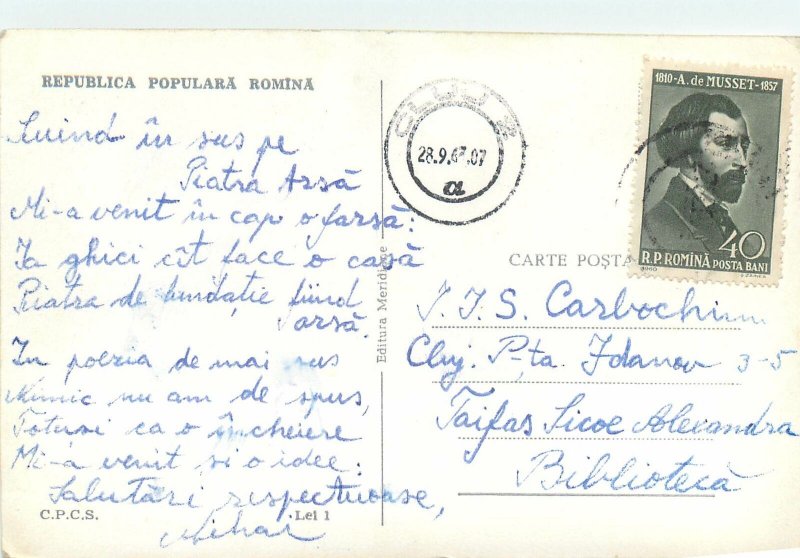 REPUBLICA POPULARĂ ROMÎNĂ
Suind în sus pe
Piatra Arsă
Mi-a venit în cap o farsă:
Ia ghici cît face o casă
Piatra de fundație fiind
arsă.
In poezia de mai sus
Nimic nu am de spus,
Totuși ca o încheiere
Mi-a venit și o idee:
Salutări respectuoase,
Mihai
C.P.C.S.
Lei 1
Editura Meridiane
CLUJ
28.9.63.07
1810-A. de MUSSET-1857
40
R.P. ROMÎNĂ POSTA BANI
1960
CARTE POȘTA
I.I.S. Carbochim
Cluj. P-ța Jdanov 3-5
Taifas Sicoe Alexandra
Bibliotecă